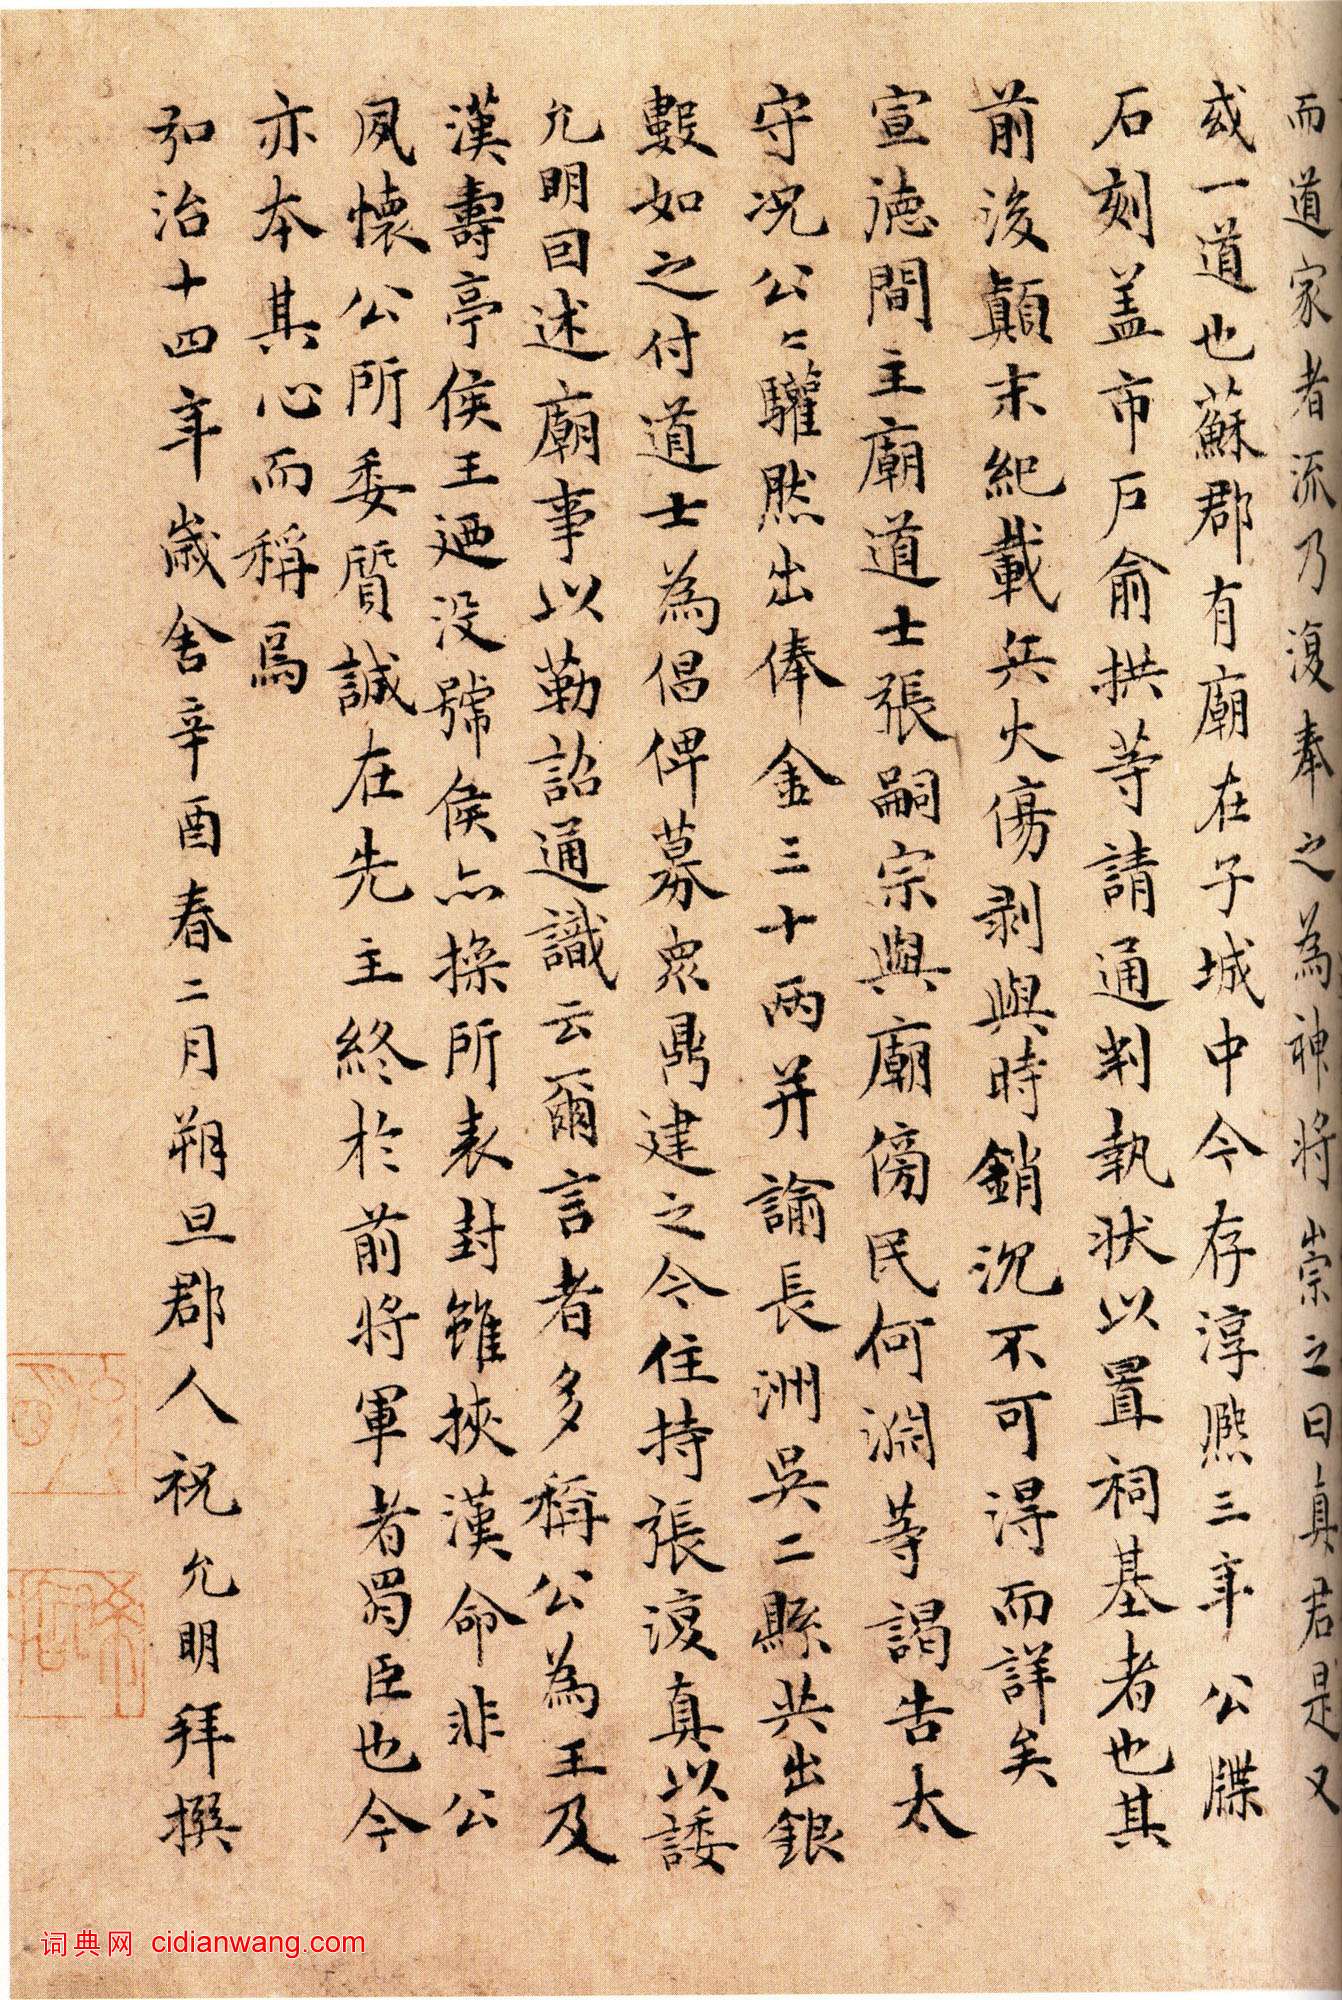 而道家者流乃復奉之為神將崇之曰真君是又
或一道也蘇郡有廟在子城中今存淳熙三年公牒
石刻盖市戶俞拱等請通判執狀以置祠基者也其
前後顛末紀載兵火傷剥與時銷沉不可得而詳矣
宣徳間主廟道士張嗣宗與廟傍民何淵等謁告太
守况公〻驩然出俸金三十两并諭長洲吳二縣共出銀
數如之付道士為倡俾募眾鼎建之今住持張復真以諉
允明回述廟事以勒詔通識云爾言者多稱公為王及
漢壽亭侯王廼没號侯亦操所表封雖挾漢命非公
夙懐公所委質誠在先主終於前將軍者蜀臣也今
亦本其心而稱焉
弘治十四年歲舍辛酉春二月朔旦郡人祝允明拜撰
词典网 cidianwang.com